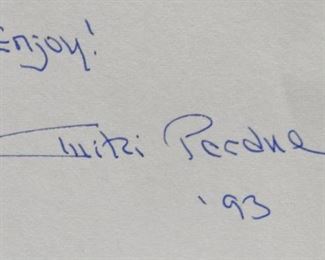 Enjoy!
Mitzi Perdue
'93